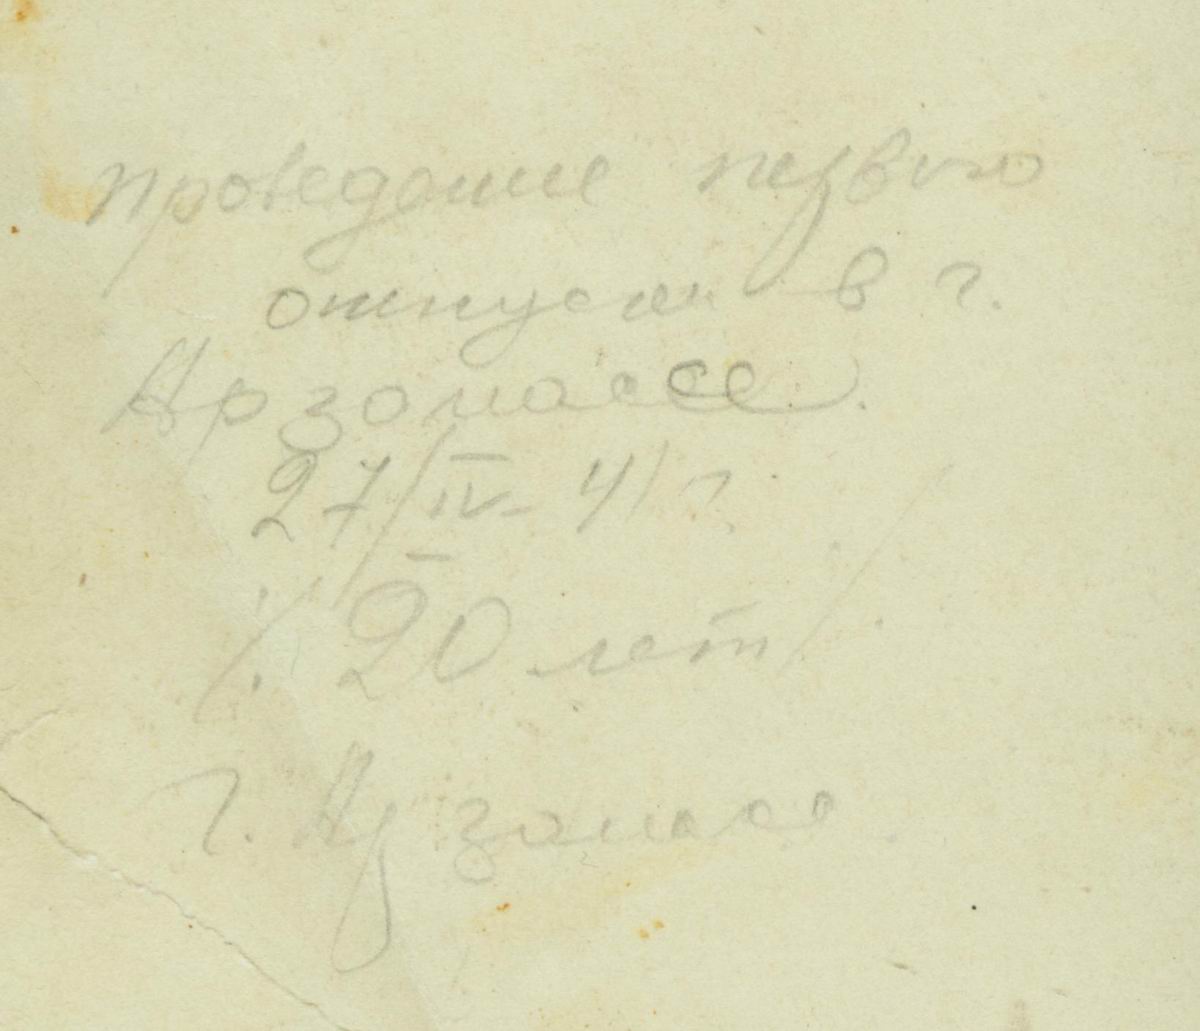 проведение первого
отпуска в г.
Арзомассе.
27/IV-41 г.
/. 20 лет/
г. Арзомасс